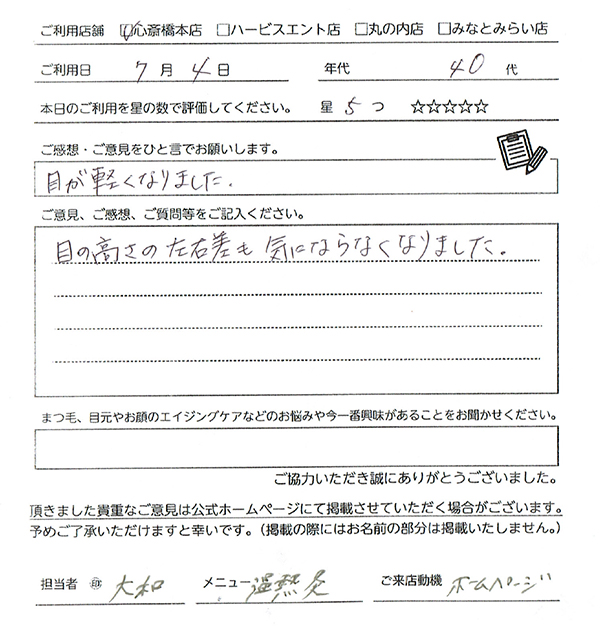 ご利用店舗 ☑心斎橋本店 □ハービスエント店 □丸の内店 □みなとみらい店
ご利用日 7月4日 年代 40代
本日のご利用を星の数で評価してください。 星 5つ ☆☆☆☆☆
ご感想・ご意見をひと言でお願いします。
目が軽くなりました.
ご意見、ご感想、ご質問等をご記入ください。
目の高さの左右差も気にならなくなりました。
まつ毛、目元やお顔のエイジングケアなどのお悩みや今一番興味があることをお聞かせください。
ご協力いただき誠にありがとうございました。
頂きました貴重なご意見は公式ホームページにて掲載させていただく場合がございます。
予めご了承いただけますと幸いです。（掲載の際にはお名前の部分は掲載いたしません。）
担当者 ㊞ 大和 メニュー 温熱灸 ご来店動機 ホームページ